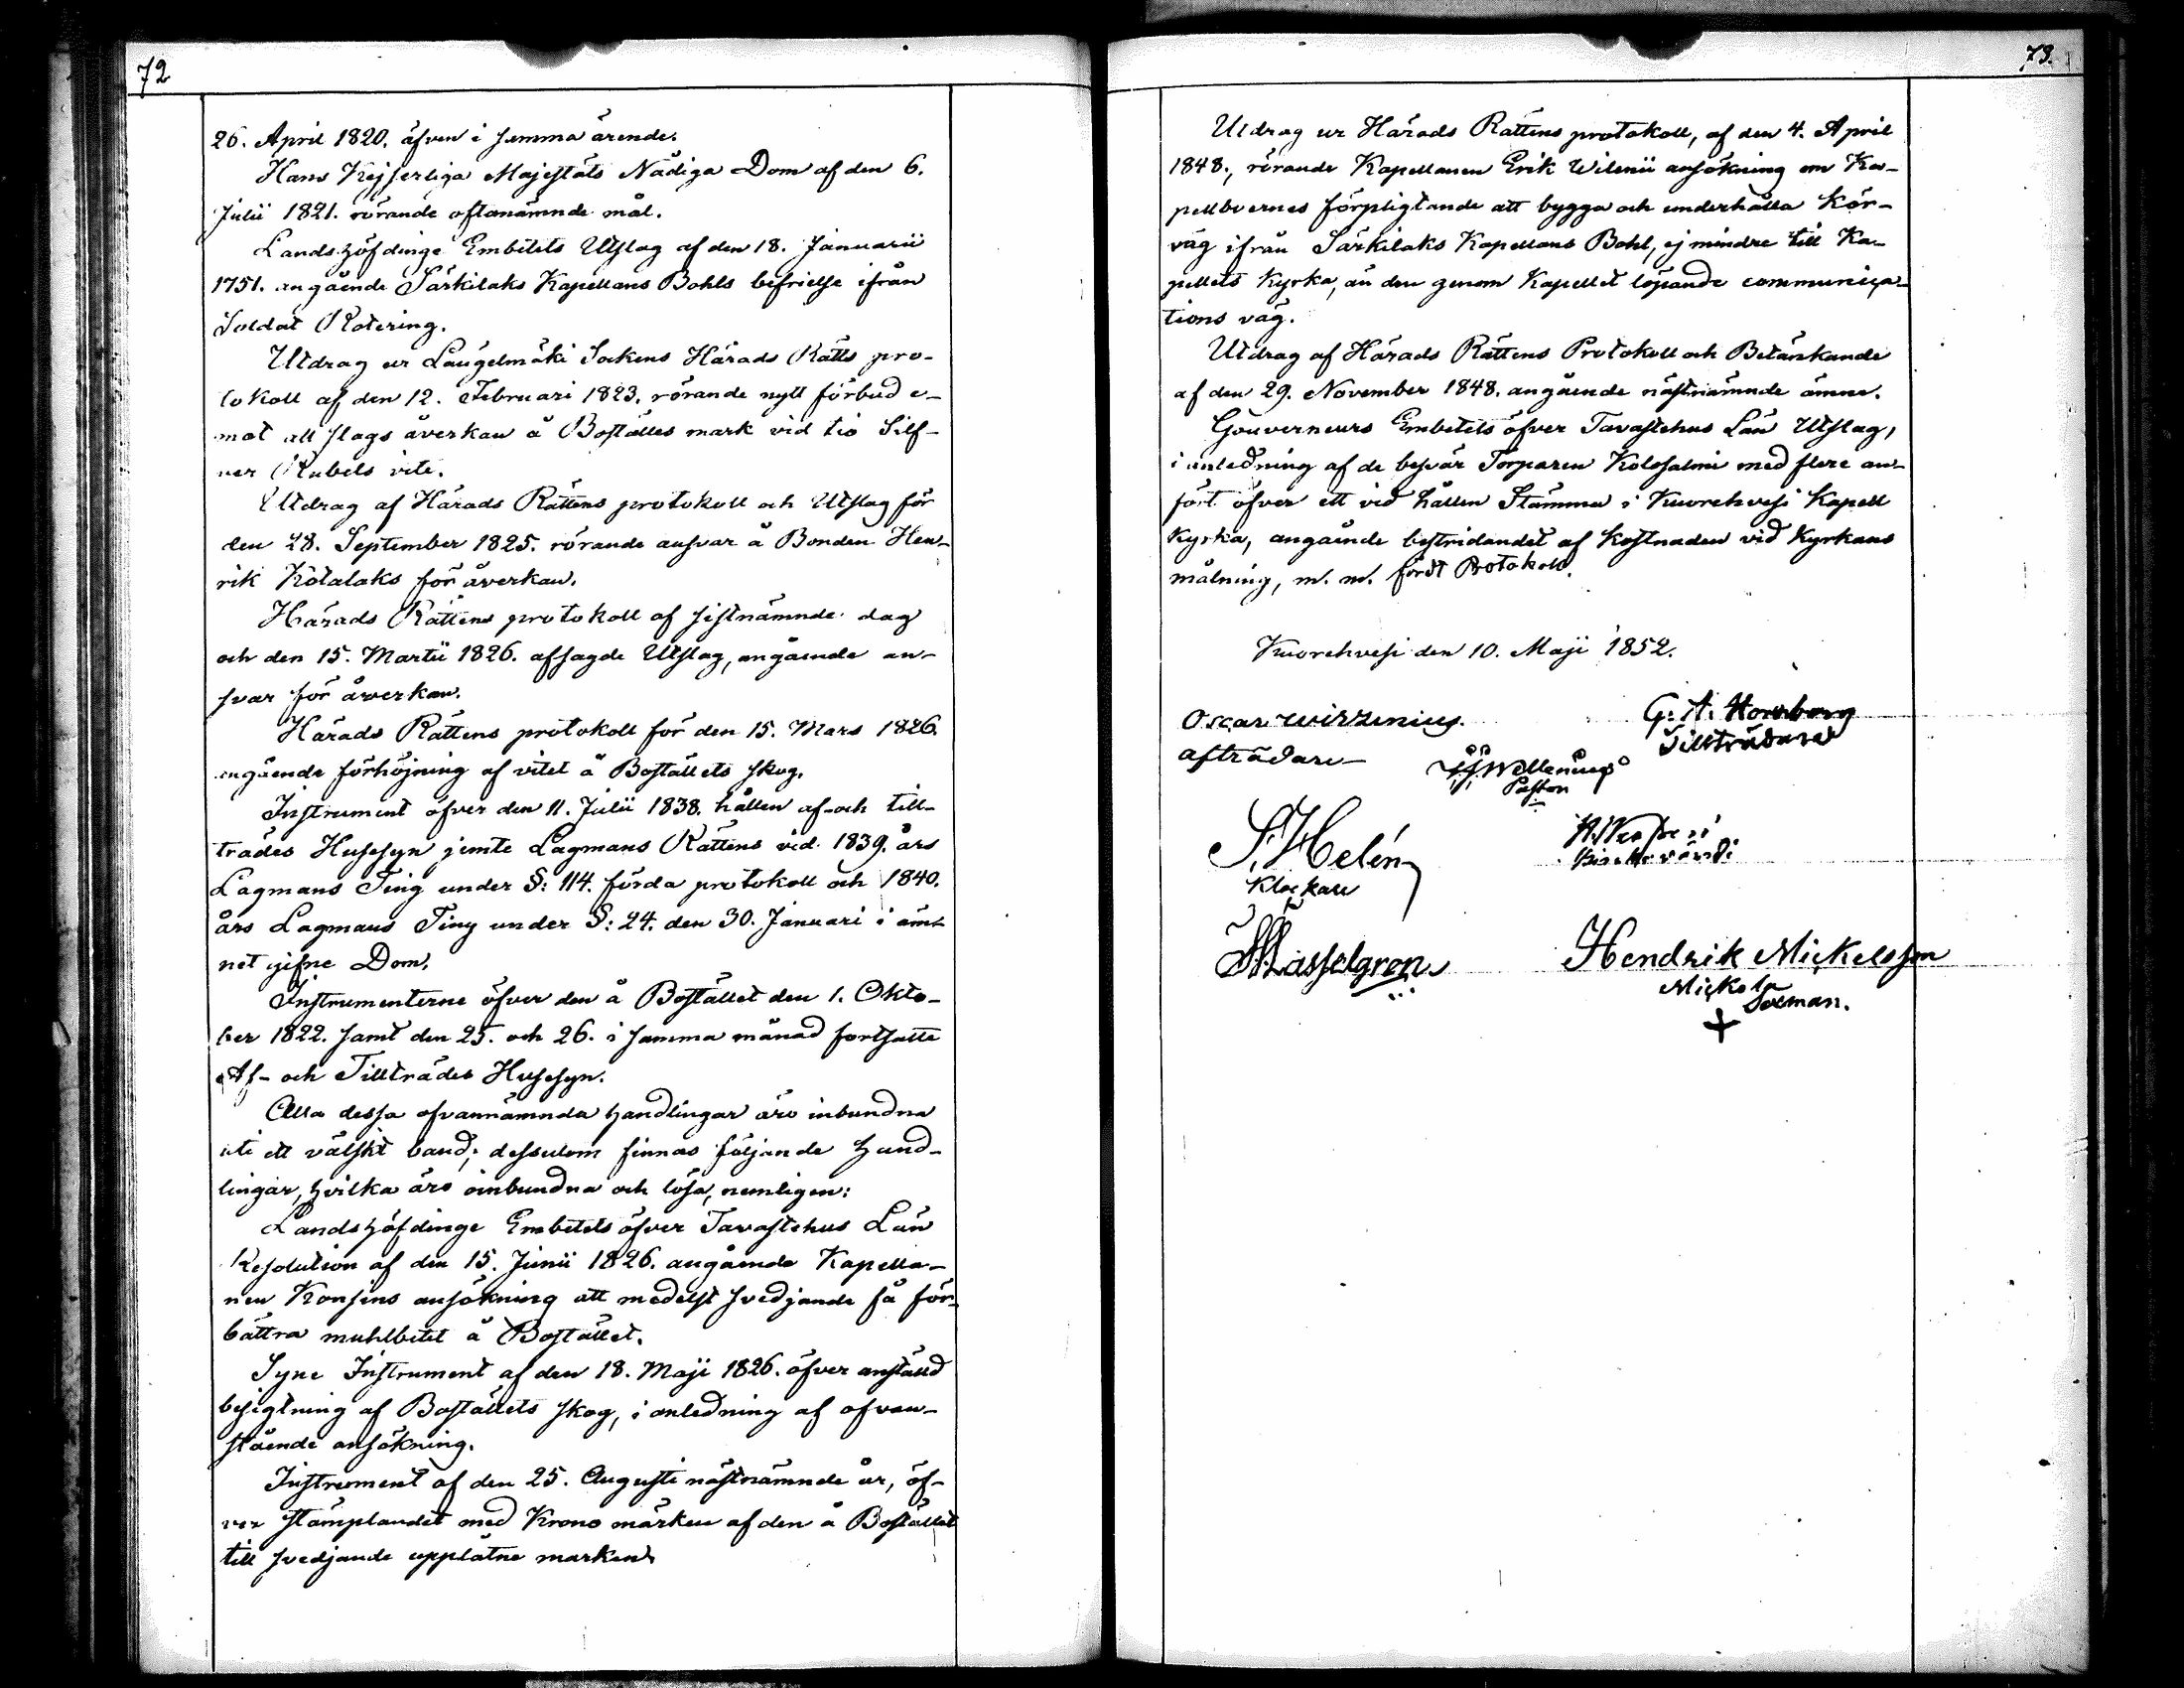 72
26. April 1820. äfven i samma ärende.
Hans Kejserliga Majestäts Nådiga Dom af den 6.
Julii 1821. rörande oftanämnde mål.
Landshöfdinge Embetets Utslag af den 18. Januarii
1751. angående Särkilaks Kapellans Bohls befrielse ifrån
Soldat Rotering.
Utdrag ur Längelmäki Sockens Härads Rätts pro-
tokoll af den 12. Februari 1823. rörande nytt förbud e-
mot all slags åverkan å Boställes mark vid tio Silf-
ver Rubels vite.
Utdrag af Härads Rättens protokoll och Utslag för
den 28. September 1825. rörande ansvar å Bonden Hen-
rik Kotalaks för åverkan.
Härads Rättens protokoll af sistnämnde dag
och den 15. Martii 1826. afsagde Utslag, angående an-
svar för åverkan.
Härads Rättens protokoll för den 15. Mars 1826.
angående förhöjning af vitet å Boställets skog.
Instrument öfver den 11. Julii 1838. hållen af- och till-
trädes Husesyn jemte Lagmans Rättens vid 1839. års
Lagmans Ting under §: 114. förda protokoll och 1840.
års Lagmans Ting under §: 24. den 30. Januari i äm-
net gifne Dom.
Instrumenterne öfver den å Bostället den 1. Okto-
ber 1822. samt den 25. och 26. i samma månad fortsatte
Af- och Tillträdes Husesyn.
Alla dessa ofvannämnda handlingar äro inbundna
uti ett välskt band; dessutom finnas följande hand-
lingar, hvilka äro oinbundna och lösa, nemligen:
Landshöfdinge Embetets öfver Tavastehus Län
Resolution af den 15. Junii 1826. angående Kapella-
nen Konsins ansökning att medelst svedjande få för-
bättra muhlbetet å Bostället.
Syne Instrument af den 18. Maji 1826. öfver anställd
besigtning af Boställets skog, i anledning af ofvan-
stående ansökning.
Instrument af den 25. Augusti nästnämnde år, öf-
ver stämplandet med Krono märken af den å Bostället
till svedjande upplåtne marken.
73.
Utdrag ur Härads Rättens protokoll, af den 4. April
1848., rörande Kapellanen Erik Wilenii ansökning om Ka-
pellboernes förpligtande att bygga och underhålla Kör-
väg ifrån Särkilaks Kapellans Bohl, ej mindre till Ka-
pellets Kyrka, än den genom Kapellet löpande communica-
tions väg.
Utdrag af Härads Rättens Protokoll och Betänkande
af den 29. November 1848. angående nästnämnde ämne.
Gouverneurs Embetets öfver Tavastehus Län Utslag,
i anledning af de besvär Torparen Kolosalmi med flere an-
fört öfver ett vid hållen Stämma i Kuorehvesi Kapell
Kyrka, angående bestridandet af Kostnaden vid Kyrkans
målning, m. m. fördt Protokoll.
Kuorehvesi den 10. Maji 1852.
Oscar Wirzenius
afträdare
G. A. Hornborg
Tillträdare
Wallenius
Pastor
S. Helén
Klockare
Hasselgren
Hendrik Mickelsson
Mickola
Sexman.